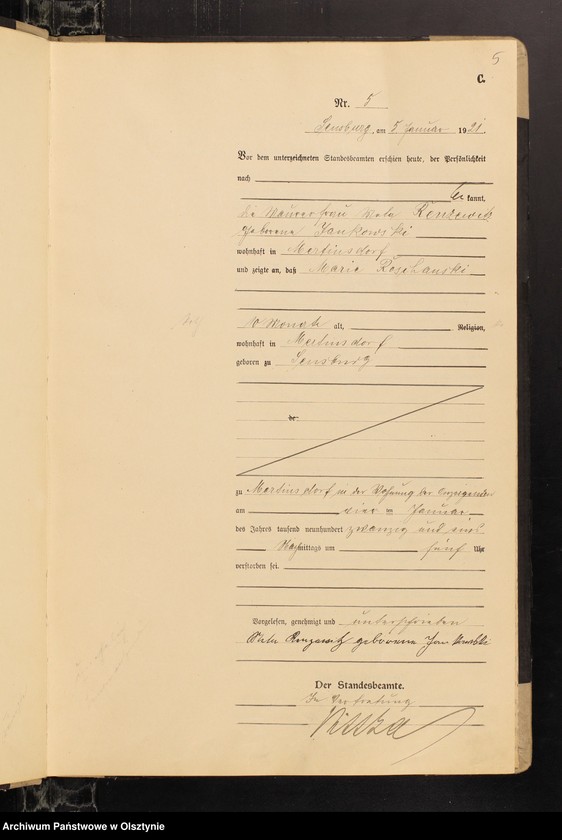 5
C.
Nr. 5
Sensburg, am 5 Januar 1921.
Vor dem unterzeichneten Standesbeamten erschien heute, der Persönlichkeit
nach
be kannt,
die Maurerfrau
geborene Jankowski
wohnhaft in Mertinsdorf
und zeigte an, daß Marie
10 Monate alt, Religion,
wohnhaft in Mertinsdorf
geboren zu Sensburg
de
zu Mertinsdorf in der Wohnung der Anzeigenden
am vier ten Januar
des Jahres tausend neunhundert zwanzig und eins
Nachmittags um fünf Uhr
verstorben sei.
Vorgelesen, genehmigt und unterschrieben
geborene Jankowski
Der Standesbeamte.
In Vertretung
Archiwum Państwowe w Olsztynie